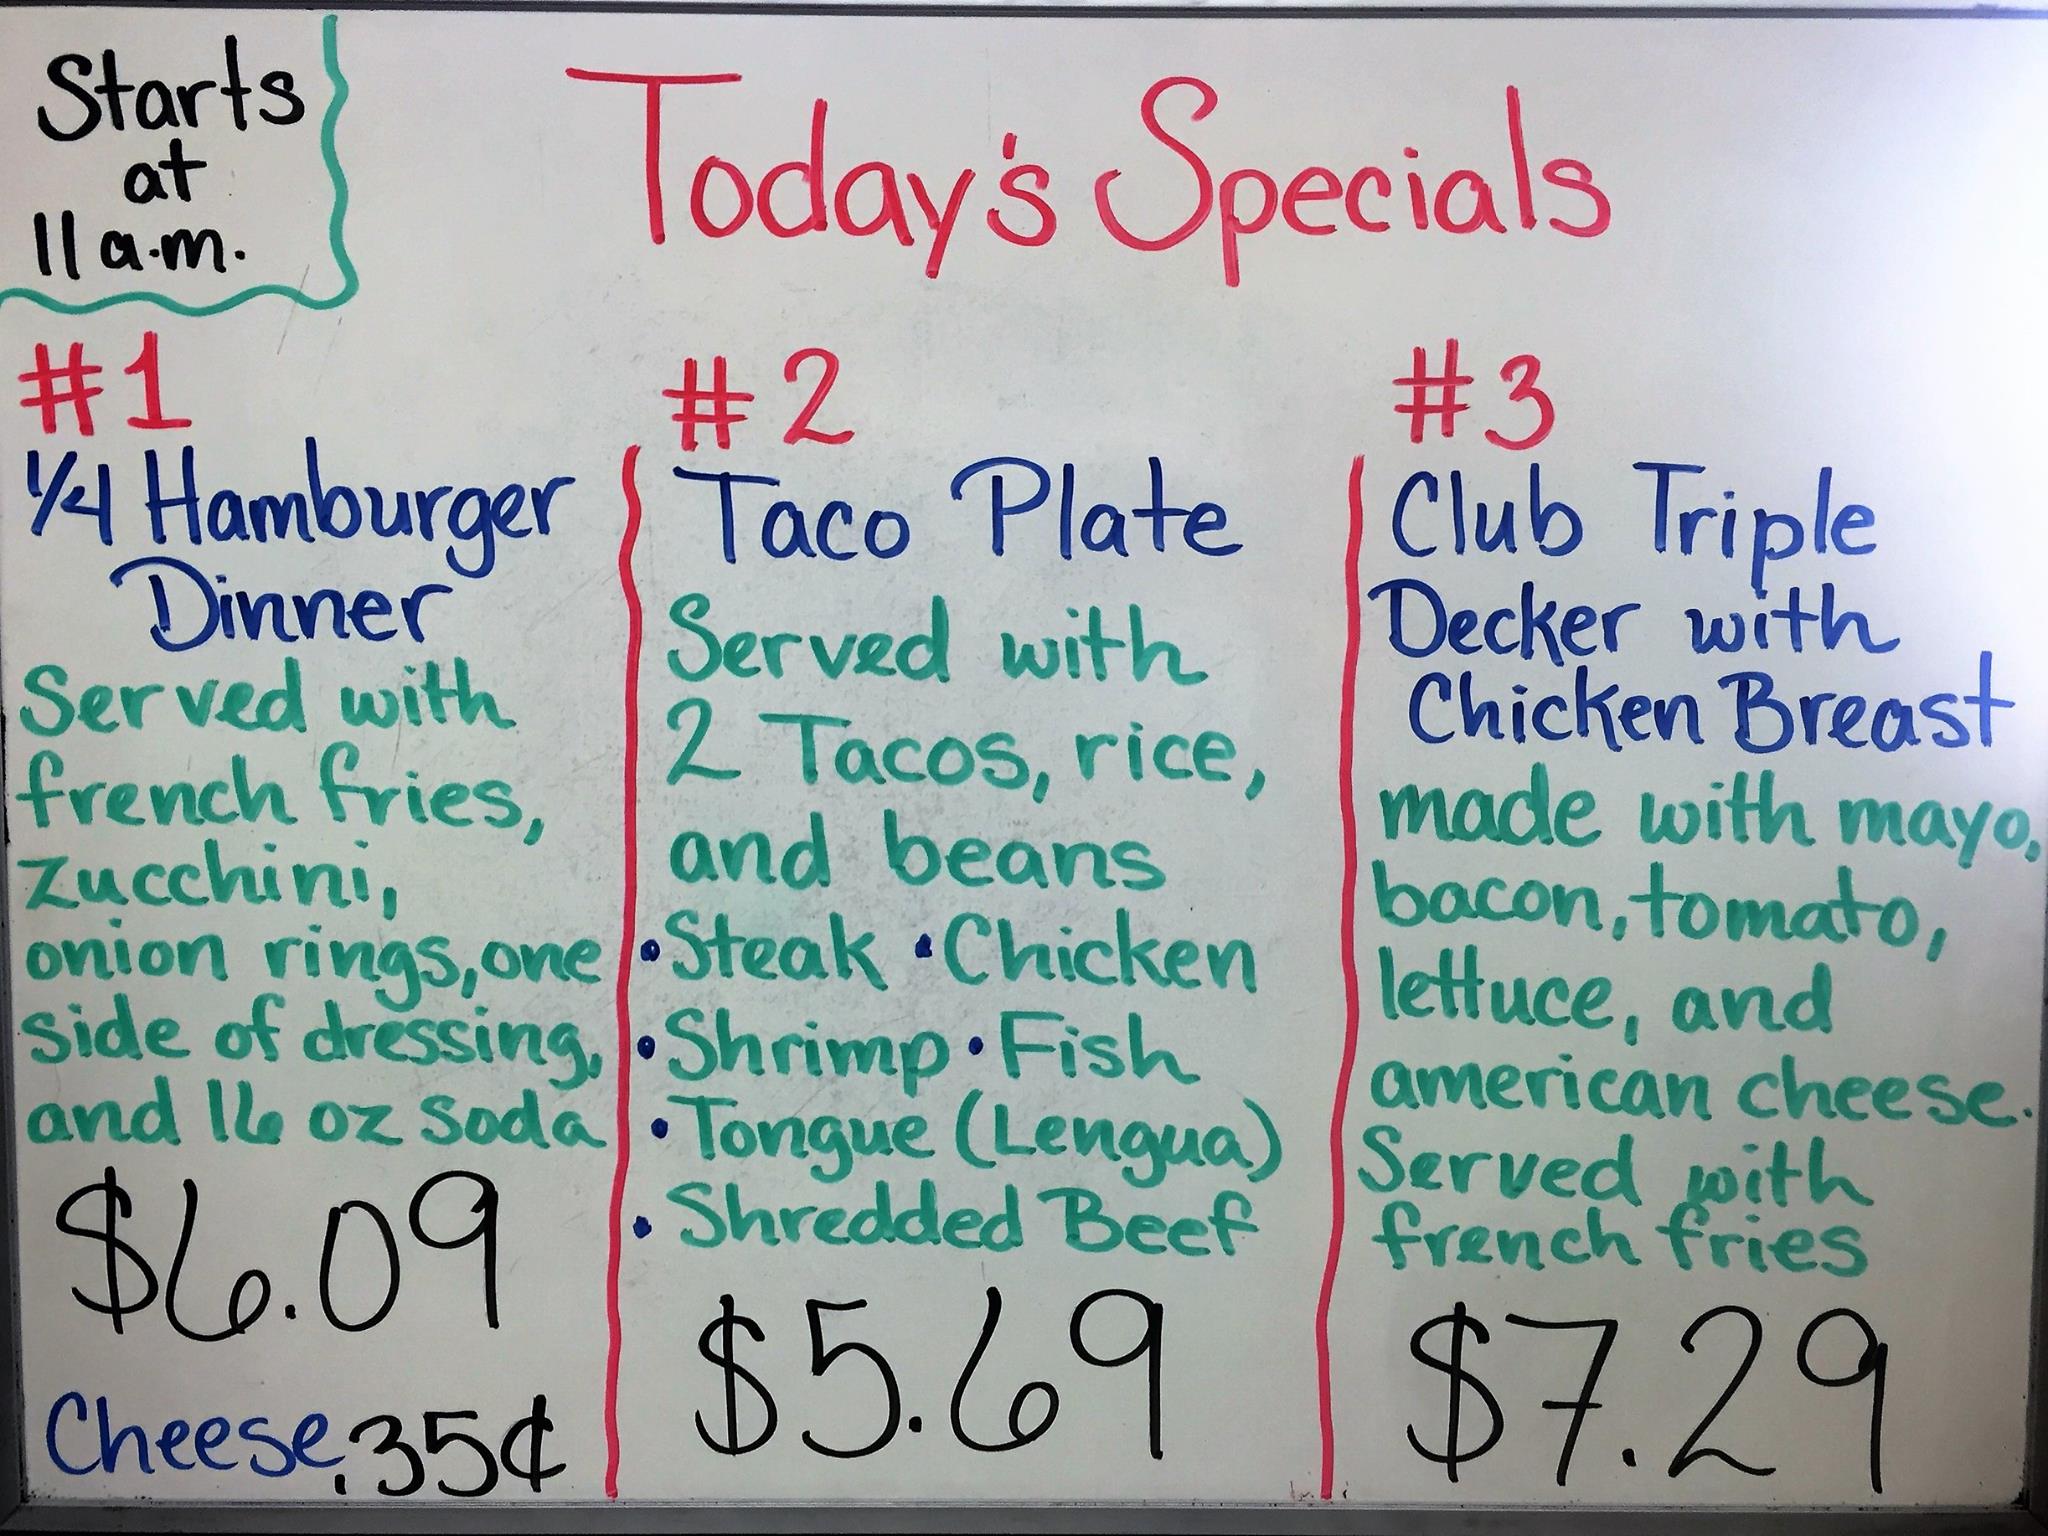 Starts
at
11 a.m.
Today's Specials
#1
1/4 Hamburger
Dinner
Served with
french fries,
zucchini,
onion rings, one
side of dressing,
and 16 oz soda
$6.09
Cheese .35¢
#2
Taco Plate
Served with
2 Tacos, rice,
and beans
•Steak •Chicken
•Shrimp •Fish
•Tongue (Lengua)
•Shredded Beef
$5.69
#3
Club Triple
Decker with
Chicken Breast
made with mayo,
bacon, tomato,
lettuce, and
american cheese.
Served with
french fries
$7.29